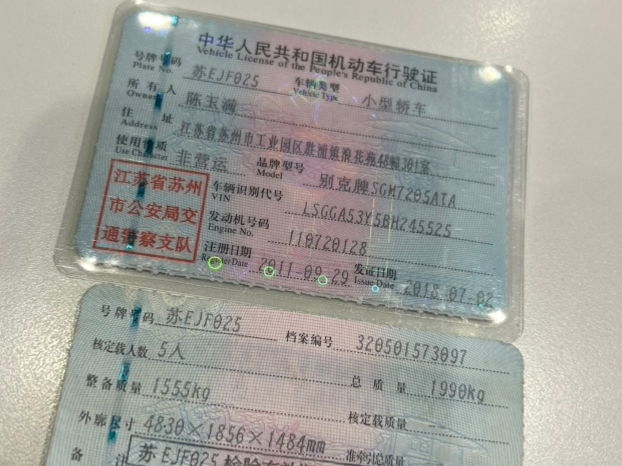 中华人民共和国机动车行驶证
Vehicle License of the People's Republic of China
号牌号码 苏EJF025 车辆类型 小型轿车
Plate No. Vehicle Type
所有人 陈玉澜
Owner
住址 江苏省苏州市工业园区胜浦镇浪花苑48幢301室
Address
使用性质 非营运 品牌型号 别克牌SGM7205ATA
Use Character Model
江苏省苏州
市公安局交
通警察支队
车辆识别代号 LSGGA53Y5BH245525
VIN
发动机号码 110720128
Engine No.
注册日期 2011-09-29 发证日期 2018-07-02
Register Date Issue Date
号牌号码 苏EJF025 档案编号 320501573097
核定载人数 5人 总质量 1990kg
整备质量 1555kg 核定载质量
外廓尺寸 4830×1856×1484mm 准牵引总质量
备注 苏EJF025